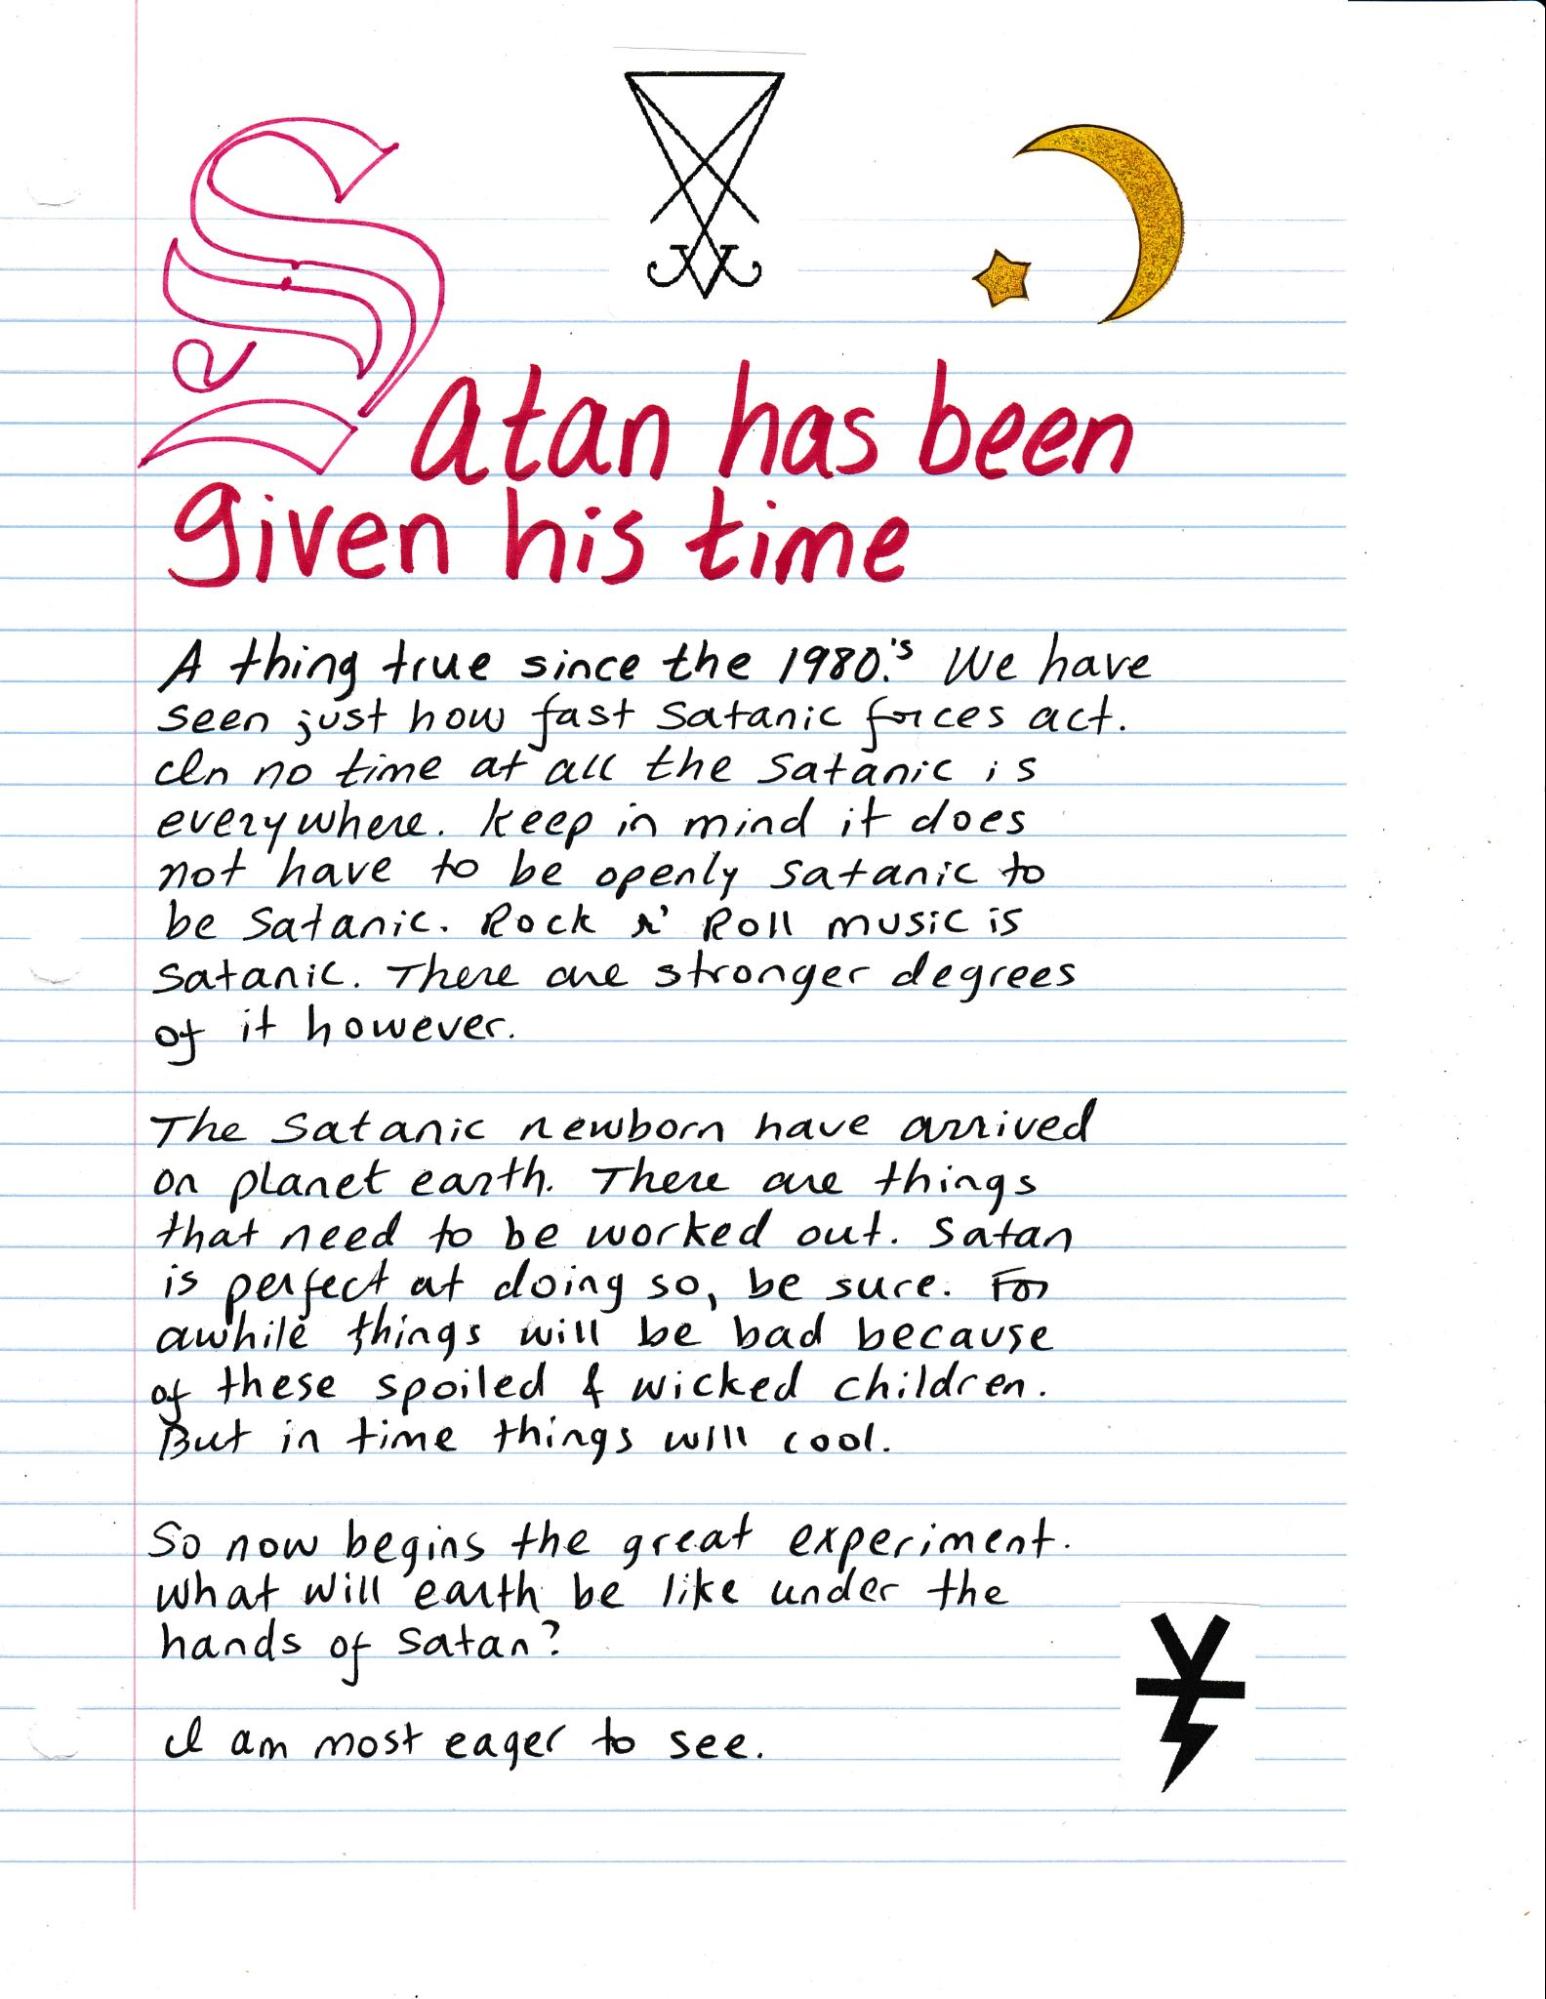 Satan has been
given his time
A thing true since the 1980.'s We have
seen just how fast Satanic forces act.
In no time at all the Satanic is
everywhere. Keep in mind it does
not have to be openly Satanic to
be Satanic. Rock n' Roll music is
Satanic. There are stronger degrees
of it however.
The Satanic newborn have arrived
on planet earth. There are things
that need to be worked out. Satan
is perfect at doing so, be sure. For
awhile things will be bad because
of these spoiled & wicked children.
But in time things will cool.
So now begins the great experiment.
What will earth be like under the
hands of Satan?
I am most eager to see.